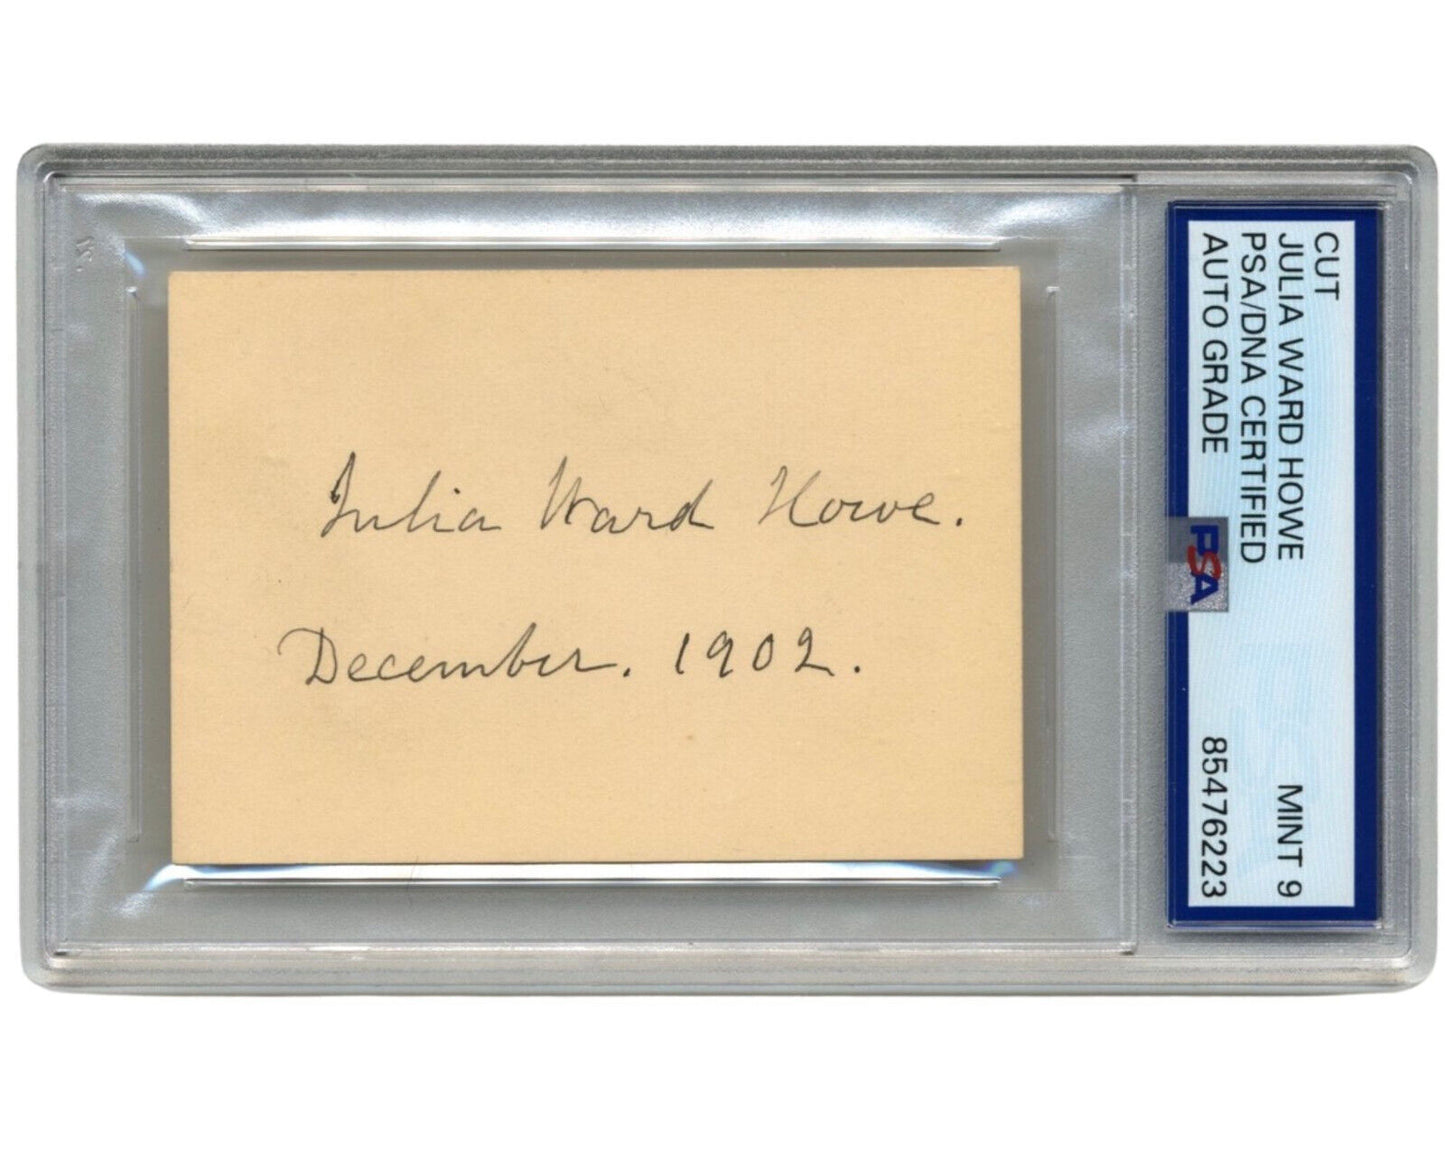 Julia Ward Howe.
December. 1902.
CUT
JULIA WARD HOWE
PSA/DNA CERTIFIED MINT 9
AUTO GRADE 85476223
PSA